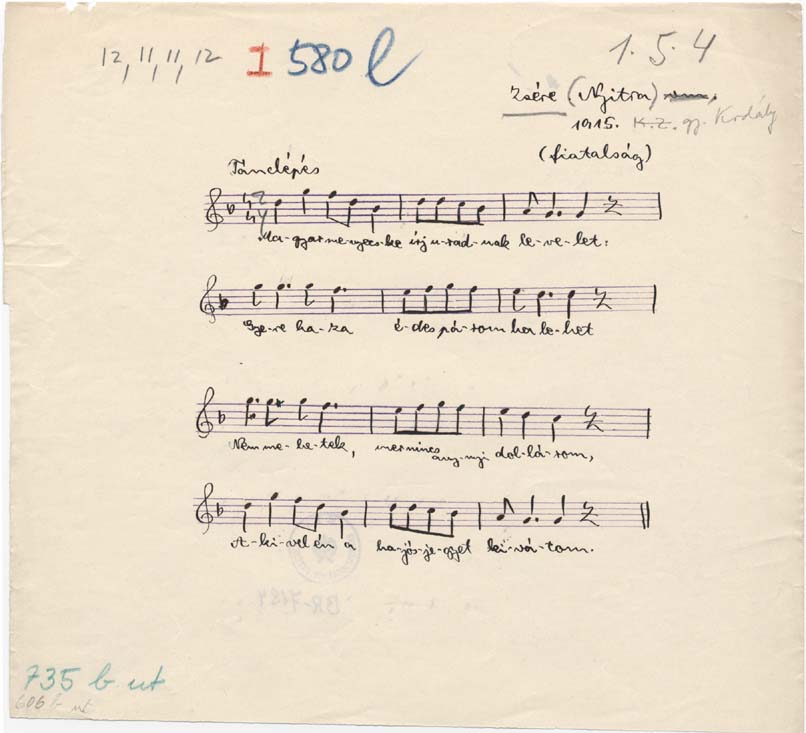 12, 11, 11, 12 I 580 l 1. 5. 4
Zsére (Nyitra)
1915. K. Z. gy. Kodály
(fiatalság)
Tánclépés
Ma-gyar me-nyecs-ke írj u-rad-nak le-ve-let:
Gye-re ha-za é-des pá-rom ha le-het
Nem me-he-tek, mer nincs any-nyi dol-lá-rom,
A-ki-vel én a ha-jós-je-gyet ki-vá-tom.
BR-7184
735 b ut
606 b ut